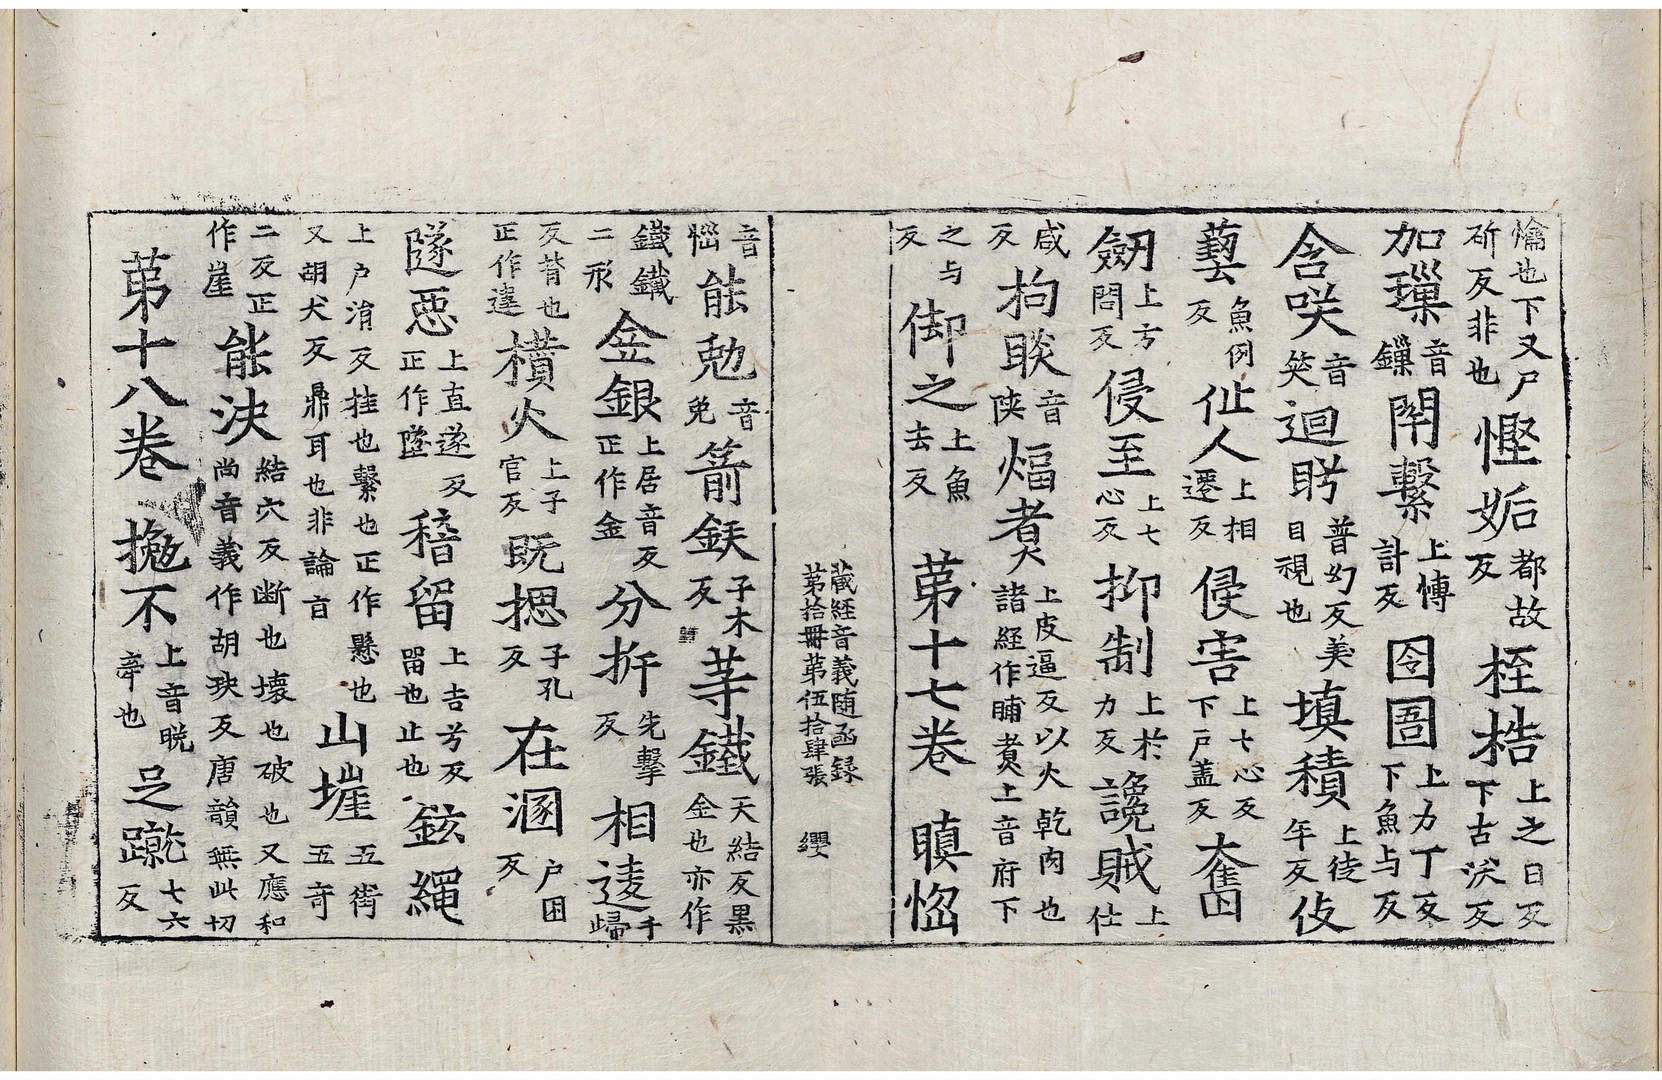 爚也下又尸斫反非也慳妬都故反桎梏上之日反下古沃反
加璅音鏁閈繫上愽計反囹圄上力丁反下魚与反
含咲音笑迴眄普幻反美目視也填積上徒年反伎
藝魚例反仙人上相遷反侵害上七心反下戸盖反奮
劒上方閤反侵至上七心反抑制上扵力反讒賊上仕
咸反拘睒音陝煏煑上皮逼反以火乾肉也諸経作䩉煑上音府下
之与反御之上魚去反 苐十七卷 瞋惱
藏経音義随函録 苐拾冊苐伍拾肆張 纓
音惱能勉音免箭鏃子木反䓁鐵天結反黒金也亦作
鐵鐵二形金銀上居音反正作金分㭊先擊反相逵千歸
反背也正作違横火上子官反既揌子孔反在溷户困反
隧惡上直遂反正作墜稽留上吉兮反畱也止也鉉繩
上户消反挂也繫也正作懸也又胡犬反鼎耳也非論盲山嵟五街五竒
二反正作崖能決結穴反断也壞也破也又應和尚音義作胡玦反唐韻無此切
苐十八卷 㨢不上音晩牽也足蹴七六反